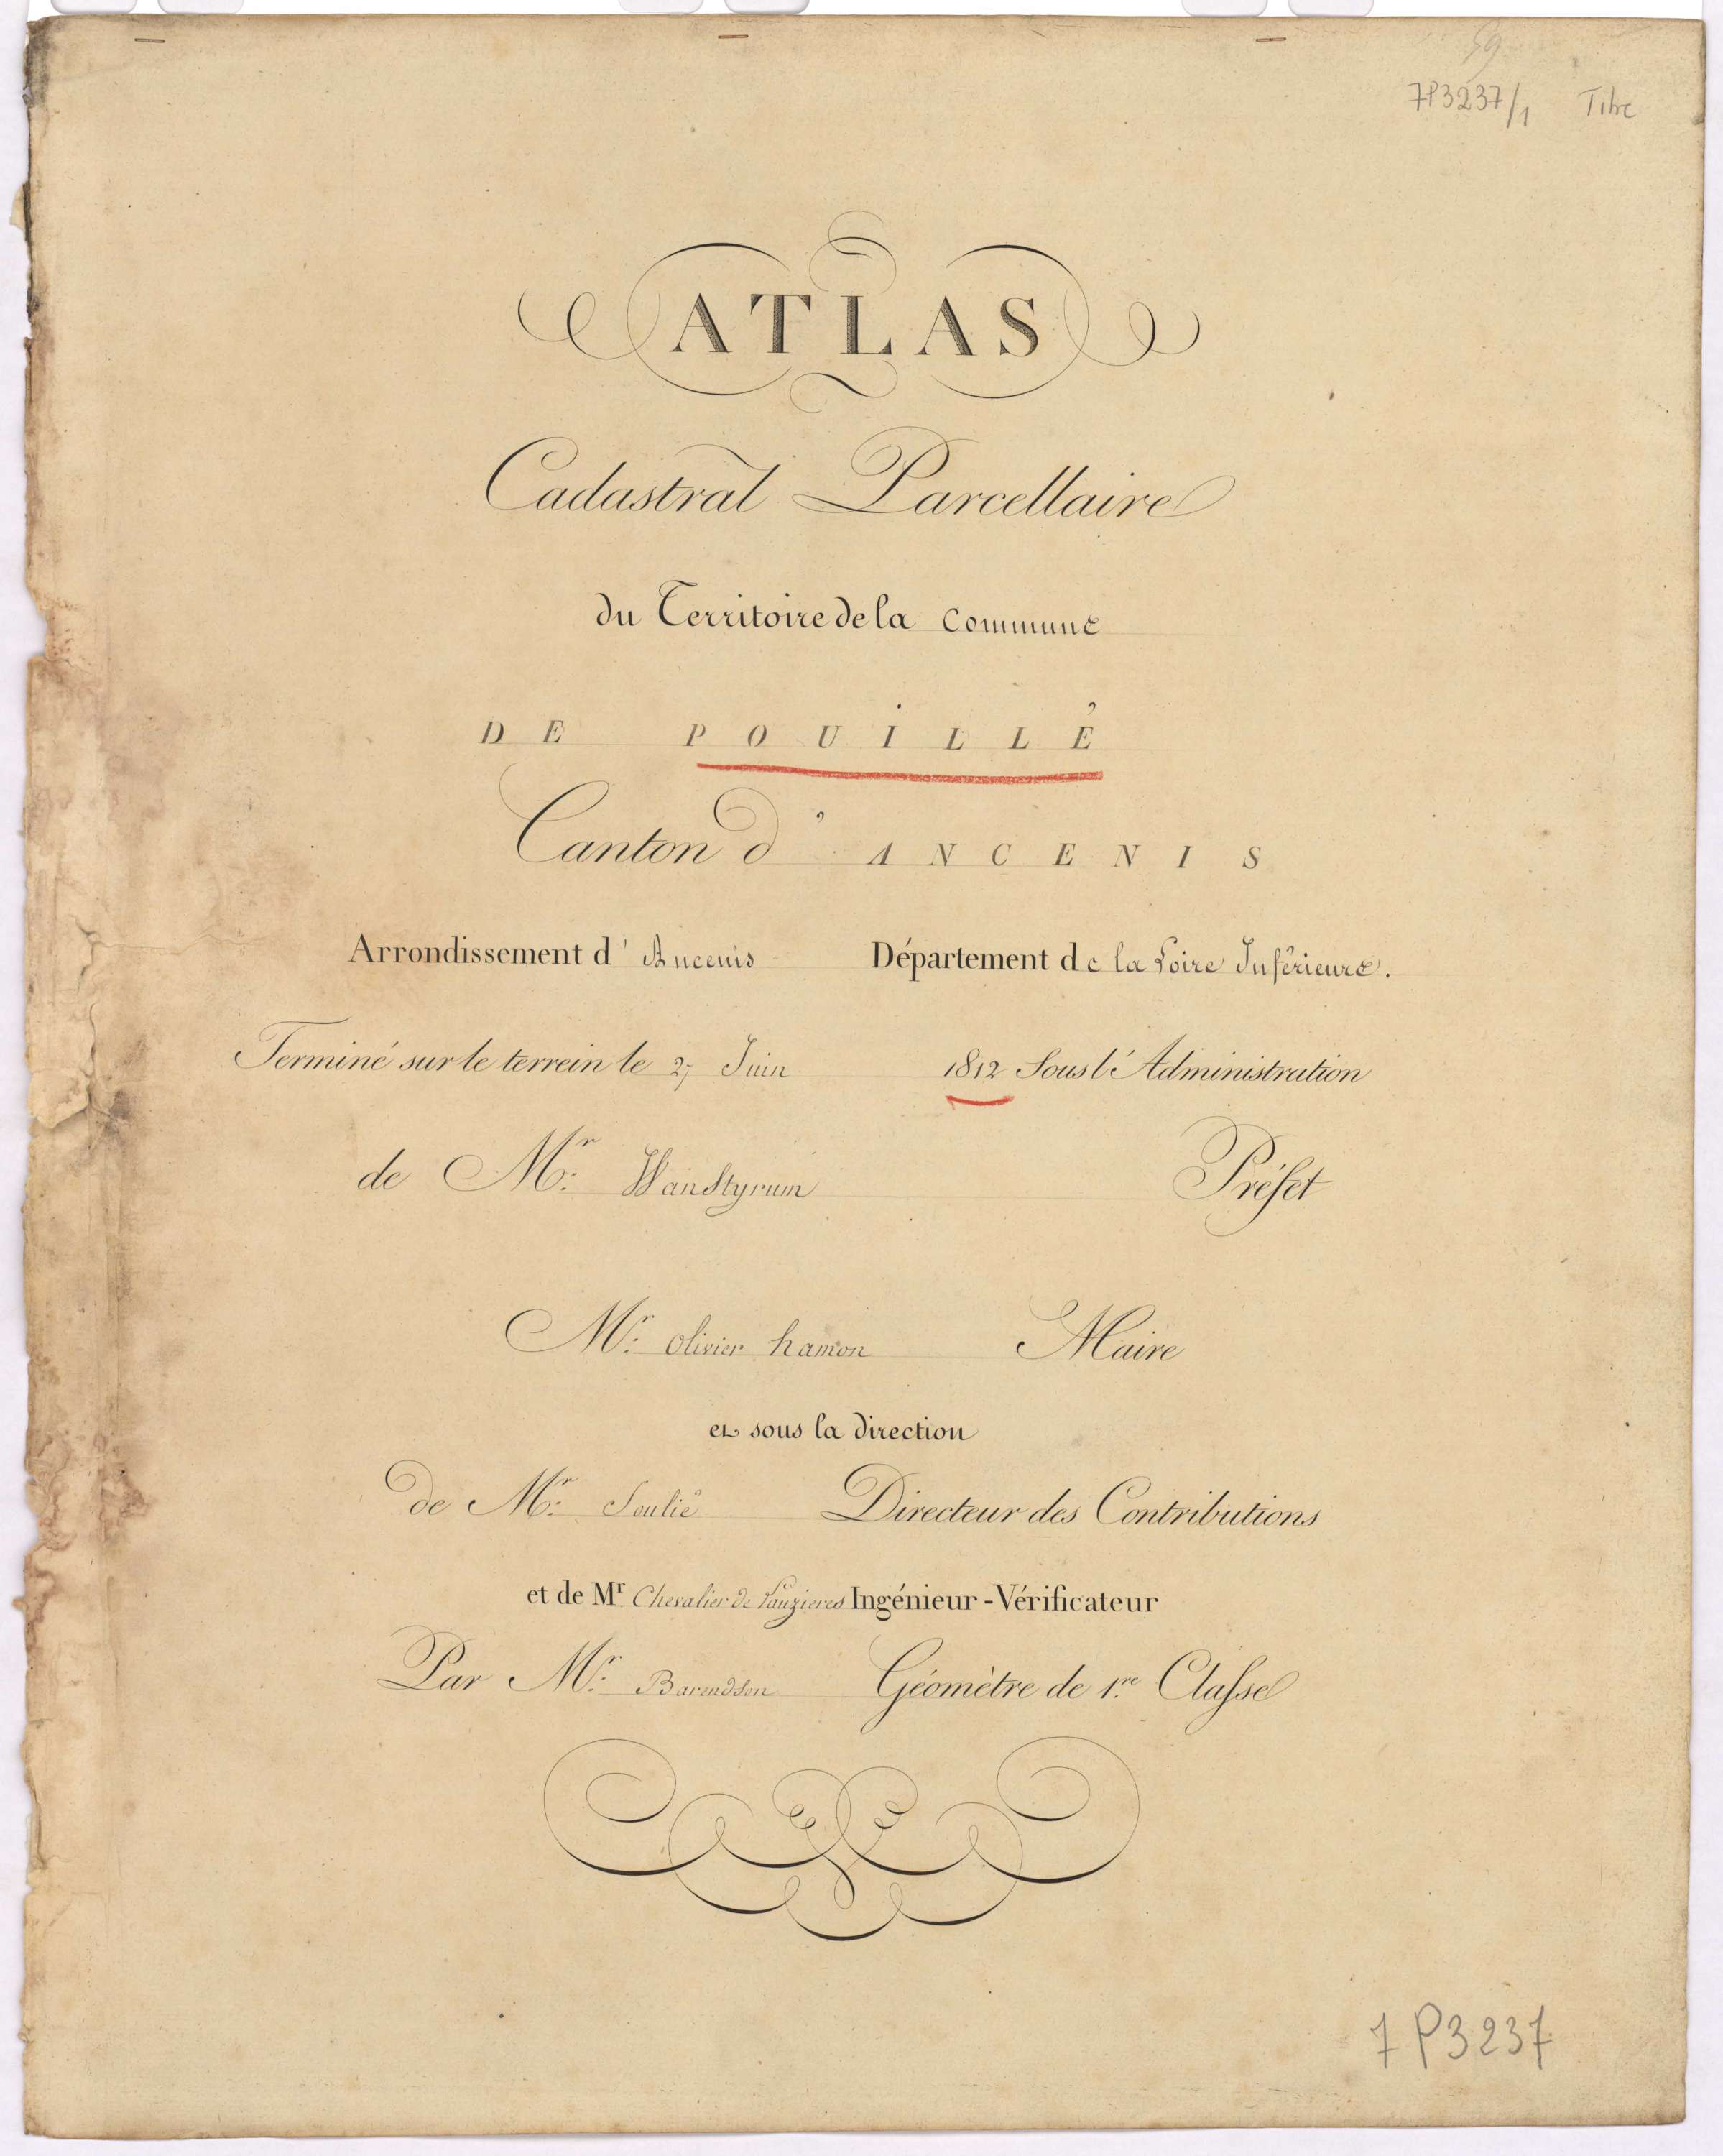 59
7P3237/1 Titre
ATLAS
Cadastral Parcellaire
du Territoire de la Commune
DE POUILLÉ
Canton d'ANCENIS
Arrondissement d'Ancenis Département de la Loire Inférieure.
Terminé sur le terrein le 27 Juin 1812 Sous l'Administration
de Mr: Wanstyrum Préfet
Mr: Olivier hamon Maire
et sous la direction
de Mr: Soulié Directeur des Contributions
et de Mr Chevalier de Lauzieres Ingénieur-Vérificateur
Par Mr: Barendson Géomètre de 1re Classe
7P3237